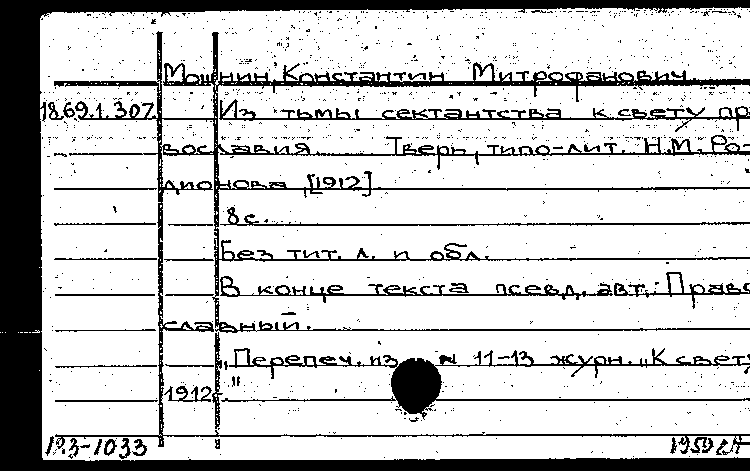 Мошнин, Константин Митрофанович.
18.69.1.307. Из тьмы сектантства к свету пра
вославия. Тверь, типо-лит. Н.М. Ро-
дионова, [1912].
8 с.
Без тит. л. и обл.
В конце текста псевд. авт.: Право
славный.
„Перепеч. из № 11-13 журн. „К свету
1912г."
123-1033